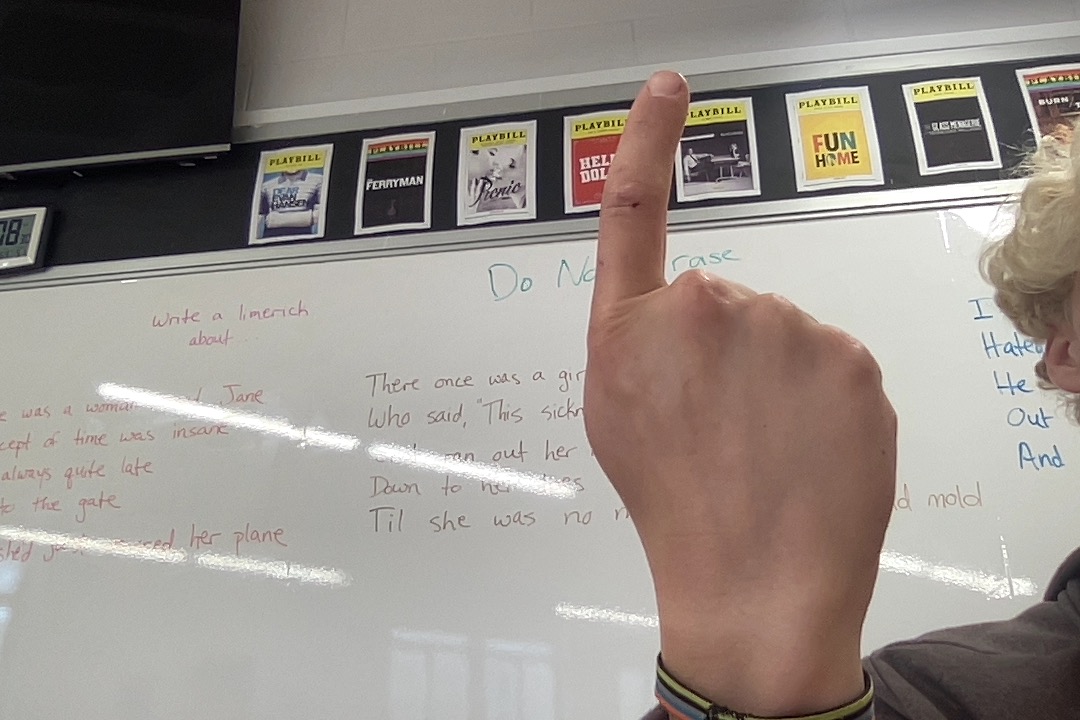 PLAYBILL
DEAR EVAN HANSEN
PLAYBILL
THE FERRYMAN
PLAYBILL
Picnic
PLAYBILL
HELL
DOL
PLAYBILL
PLAYBILL
FUN
HOME
PLAYBILL
THE GLASS MENAGERIE
PLAYBILL
BURN
Do No rase
Write a limerich
about...
e was a woman Jane
cept of time was insane
always quite late
to the gate
she'd just missed her plane
There once was a gir
Who said, "This sickn
ran out her
Down to her
Til she was no m
d mold
I
Hated
He
Out
And